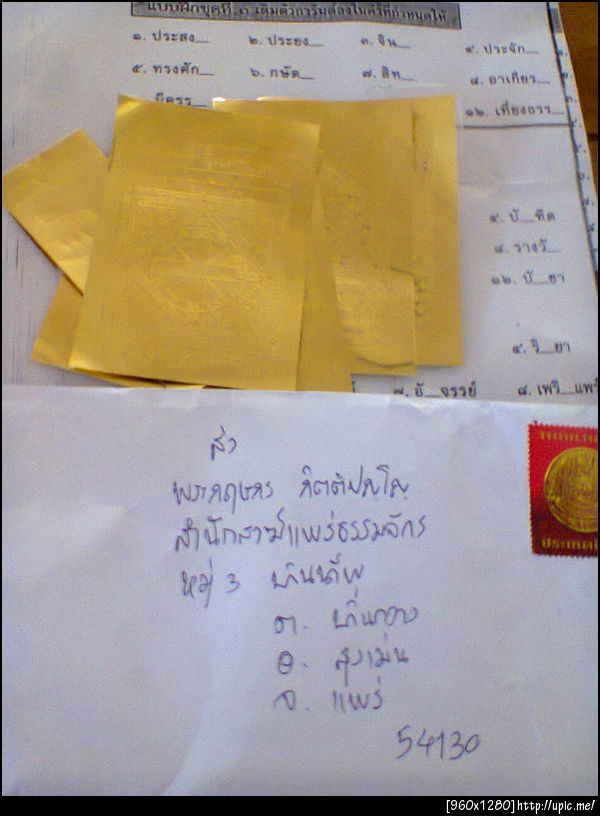 แบบฝึกชุดที่ ๓ เติมตัวการันต์ลงในคำที่กำหนดให้
๑. ประสง__ ๒. ประยง__ ๓. จิน__ ๔. ประจัก__
๕. ทรงศัก__ ๖. กษัต__ ๗. สิท__ ๘. อาเกียร__
๑๒. เที่ยงธรร__
๙. บั__ฑิต
๔. รางวั__
๑๒. บั__ยา
๔. วิ__ยา
๗. อั__จรรย์ ๘. เพริ__แพร
ส่ง
พระกฤษกร กิตติปญฺโญ
สำนักสงฆ์แพร่ธรรมจักร
หมู่ 3
ต.
อ. สูงเม่น
จ. แพร่
54130
[960x1280]http://upic.me/